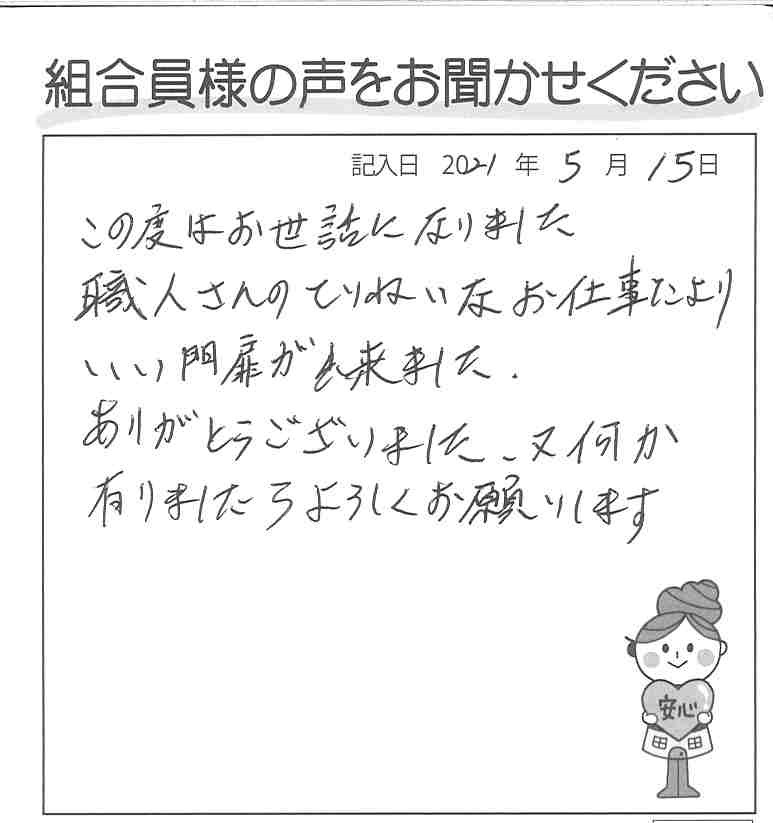 組合員様の声をお聞かせください
記入日 2021 年 5 月 15日
この度はお世話になりました
職人さんのていねいなお仕事により
いい門扉が出来ました.
ありがとうございました、又何か
有りましたらよろしくお願いします
安心